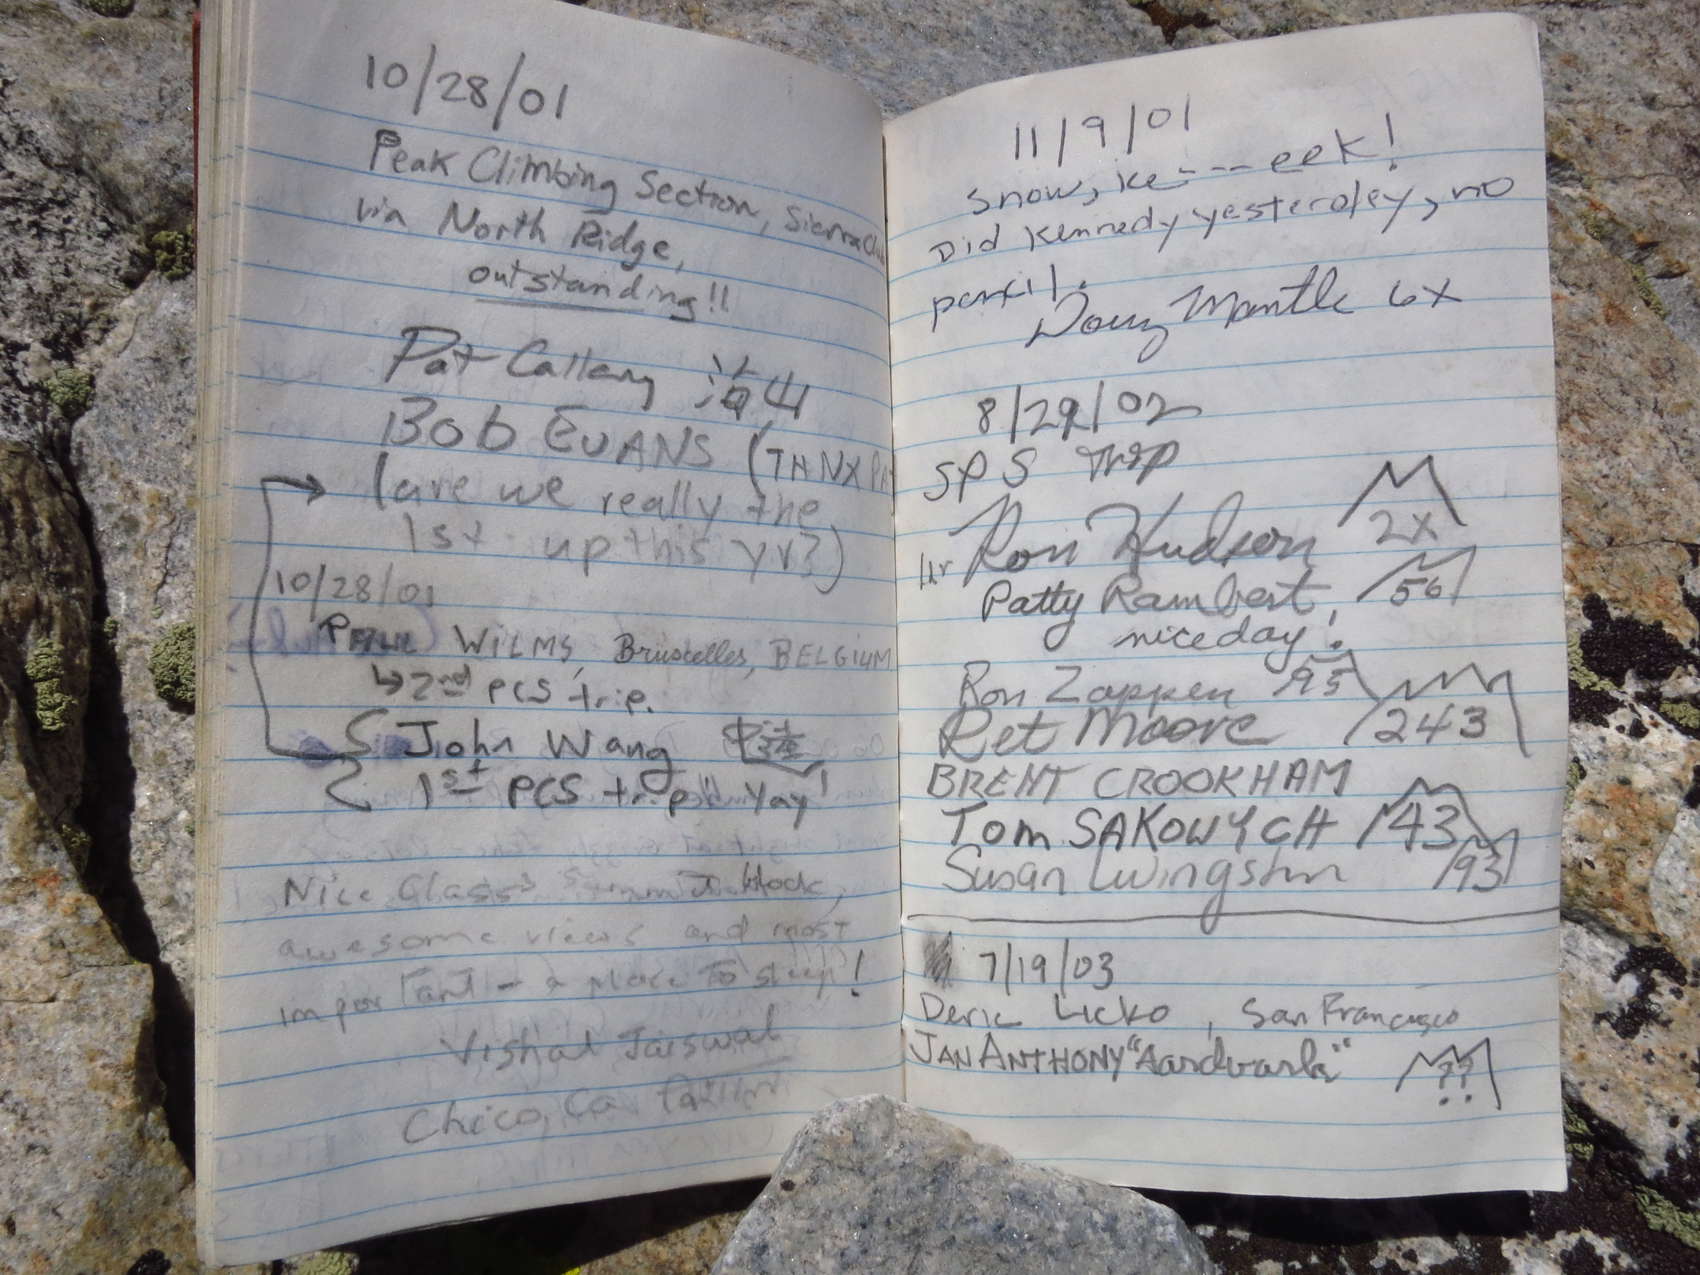 10/28/01
Peak Climbing Section, Sierra Club
via North Ridge,
outstanding!!
Pat Callery 治山
Bob EVANS (THNX PA
(are we really the
1st up this yr?)
10/28/01
PAUL WILMS, Bruxelles, BELGIUM
↳ 2nd PCS trip.
John Wang
1st PCS trip "Yay!
Nice Class 3 summit block,
awesome views and most
important - a place to sleep!
Vishal Jaiswal
Chico, Ca
11/9/01
Snow, ke---eek!
Did Kennedy yesterday, no
pencil.
Doug Mantle 6X
8/29/02
SPS Trip
Ron Hudson 2X
Patty Rambert 56
nice day!
Ron Zappen 95
Ret Moore 243
BRENT CROOKHAM
Tom SAKOWYCH 43
Susan Livingston 93
7/19/03
Deric Licko, San Francisco
JAN ANTHONY "Aardvark" ??